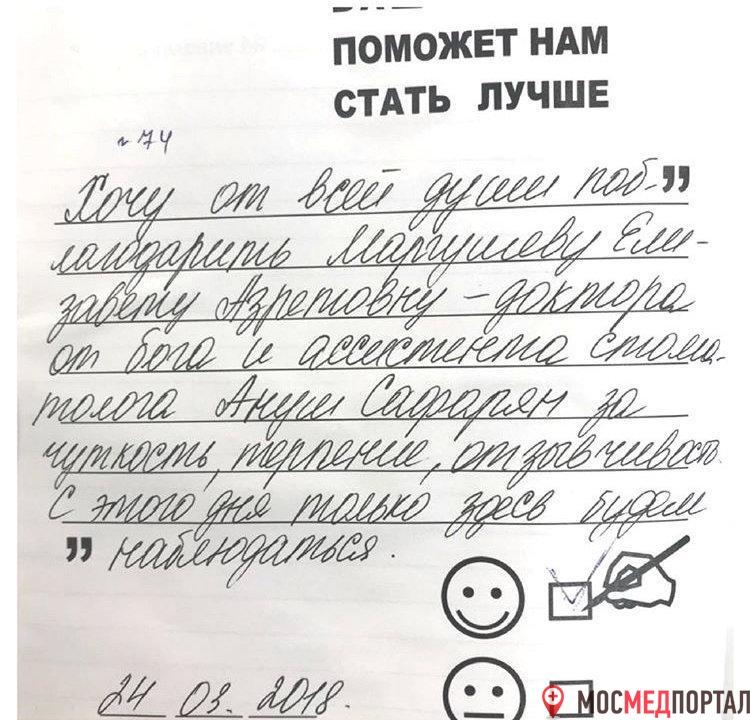 ПОМОЖЕТ НАМ
СТАТЬ ЛУЧШЕ
74
Хочу от всей души поб-”
лагодарить Маргушеву Ели-
завету Азретовну – доктора
от бога и ассистента стома-
толога Ануш Сафарян за
чуткость, терпение, отзывчивость.
С этого дня только здесь будем
” наблюдаться.
24 03. 2018.
МОСМЕДПОРТАЛ